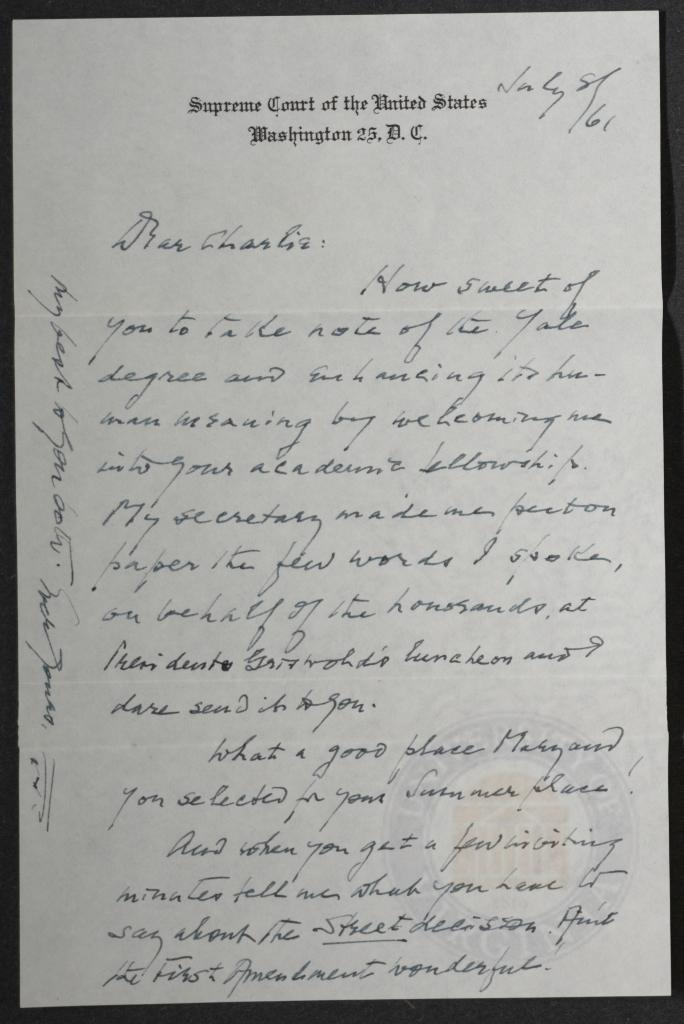 Supreme Court of the United States
Washington 25, D. C.
July 8/
/61
Dear Charlie:
How sweet of
you to take note of the Yale
degree and enhancing its hu-
man meaning by welcoming me
into your academic fellowship.
My secretary made me put on
paper the few words I spoke,
on behalf of the honorands, at
President Griswold's luncheon and I
dare send it to you.
What a good place Mary and
you selected for your Summer place!
And when you get a few inviting
minutes tell me what you have to
say about the Street decision. Ain't
the First Amendment wonderful.
My best to you both. Ever yours,
F.F.